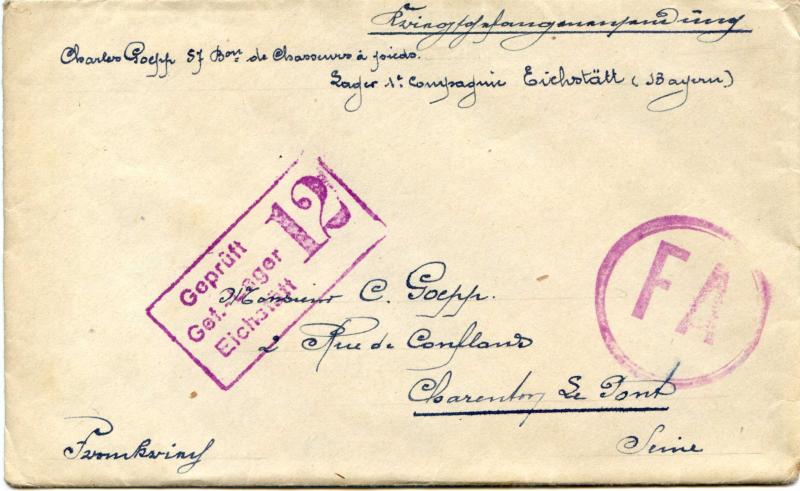 Kriegsgefangenensendüng
Charles Goepp 57 Bon de Chasseurs à pieds.
Lager 1e Compagnie Eichstätt (Bayern)
Geprüft
Gef.-Lager
Eichstätt
12
FA
Monsieur C. Goepp.
2 Rue de Conflans
Charenton Le Pont
Seine
Frankriech